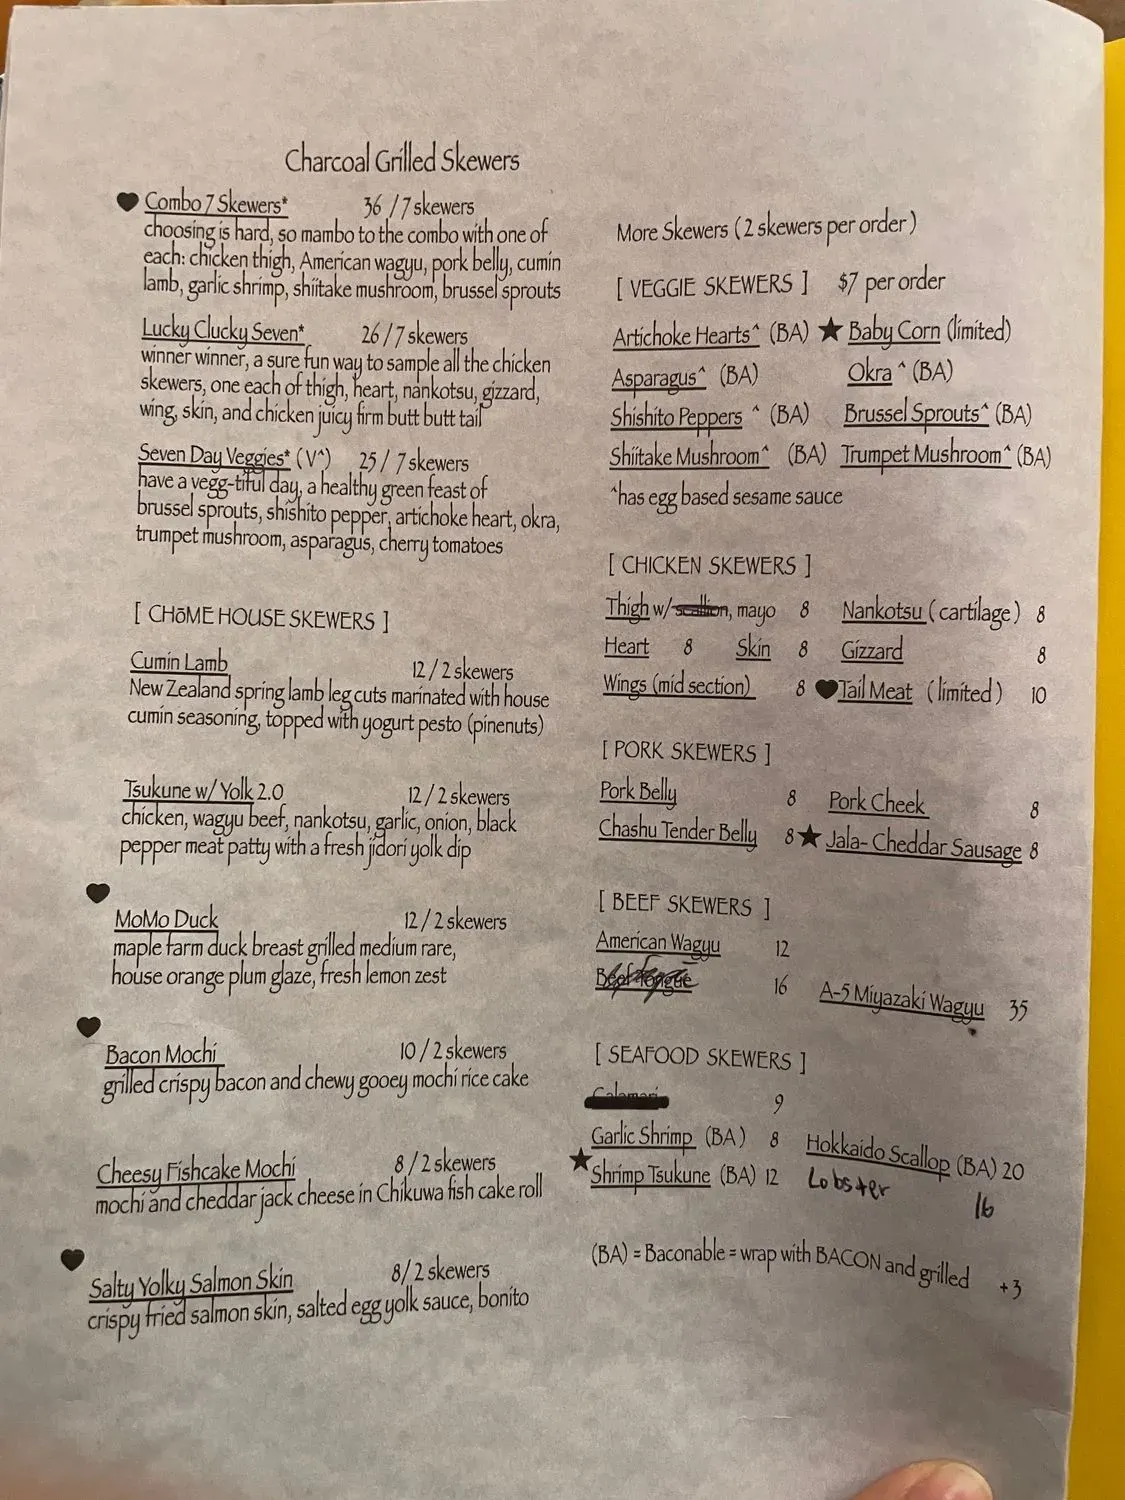 Charcoal Grilled Skewers
Combo 7 Skewers* 36 / 7 skewers
choosing is hard, so mambo to the combo with one of
each: chicken thigh, American wagyu, pork belly, cumin
lamb, garlic shrimp, shiitake mushroom, brussel sprouts
Lucky Clucky Seven* 26 / 7 skewers
winner winner, a sure fun way to sample all the chicken
skewers, one each of thigh, heart, nankotsu, gizzard,
wing, skin, and chicken juicy firm butt butt tail
Seven Day Veggies* (V^) 25 / 7 skewers
have a vegg-tiful day, a healthy green feast of
brussel sprouts, shishito pepper, artichoke heart, okra,
trumpet mushroom, asparagus, cherry tomatoes
[ CHōME HOUSE SKEWERS ]
Cumin Lamb 12 / 2 skewers
New Zealand spring lamb leg cuts marinated with house
cumin seasoning, topped with yogurt pesto (pinenuts)
Tsukune w/ Yolk 2.0 12 / 2 skewers
chicken, wagyu beef, nankotsu, garlic, onion, black
pepper meat patty with a fresh jidori yolk dip
MoMo Duck 12 / 2 skewers
maple farm duck breast grilled medium rare,
house orange plum glaze, fresh lemon zest
Bacon Mochi 10 / 2 skewers
grilled crispy bacon and chewy gooey mochi rice cake
Cheesy Fishcake Mochi 8 / 2 skewers
mochi and cheddar jack cheese in Chikuwa fish cake roll
Salty Yolky Salmon Skin 8/ 2 skewers
crispy fried salmon skin, salted egg yolk sauce, bonito
More Skewers ( 2 skewers per order )
[ VEGGIE SKEWERS ] $7 per order
Artichoke Hearts^ (BA) ★ Baby Corn (limited)
Asparagus^ (BA) Okra ^ (BA)
Shishito Peppers ^ (BA) Brussel Sprouts^ (BA)
Shiitake Mushroom^ (BA) Trumpet Mushroom^ (BA)
^has egg based sesame sauce
[ CHICKEN SKEWERS ]
Thigh w/ scallion, mayo 8 Nankotsu ( cartilage ) 8
Heart 8 Skin 8 Gizzard 8
Wings (mid section) 8 Tail Meat ( limited ) 10
[ PORK SKEWERS ]
Pork Belly 8 Pork Cheek 8
Chashu Tender Belly 8 ★ Jala- Cheddar Sausage 8
[ BEEF SKEWERS ]
American Wagyu 12
Beef Tongue 16 A-5 Miyazaki Wagyu 35
[ SEAFOOD SKEWERS ]
Calamari 9
Garlic Shrimp (BA) 8 Hokkaido Scallop (BA) 20
★ Shrimp Tsukune (BA) 12 Lobster 16
(BA) = Baconable = wrap with BACON and grilled +3